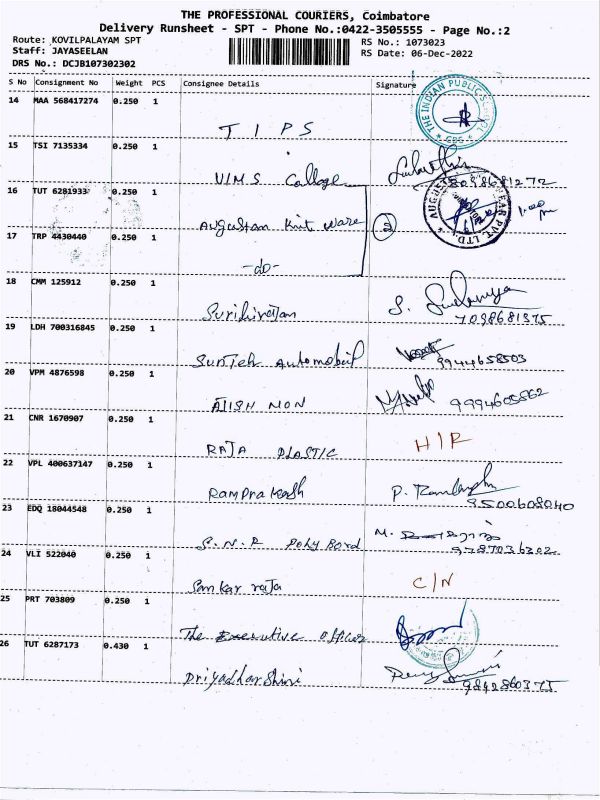 THE PROFESSIONAL COURIERS, Coimbatore
Delivery Runsheet - SPT - Phone No.:0422-3505555 - Page No.:2
Route: KOVILPALAYAM SPT
Staff: JAYASEELAN
DRS No.: DCJB107302302
RS No.: 1073023
RS Date: 06-Dec-2022
S No Consignment No Weight PCS Consignee Details Signature
14 MAA 568417274 0.250 1
TIPS
THE INDIAN PUBLIC SCHOOL
CBS
15 TSI 7135334 0.250 1
VIMS College
8098681272
16 TUT 6281933 0.250 1
Augustan Knit Ware
22
AUGUST WEAR PVT. LTD.
1.00 pm
17 TRP 4430440 0.250 1
-do-
18 CMM 125912 0.250 1
S.
7098681375
19 LDH 700316845 0.250 1
SunTeh Automobil
9944658503
20 VPM 4876598 0.250 1
AJISH MON
9994605562
21 CNR 1670907 0.250 1
RAJA PLASTIC
H/R
22 VPL 400637147 0.250 1
Ramprakash
P.
9500608040
23 EDQ 18044548 0.250 1
S.N.R Poly Bord
M.
9787036202
24 VLI 522040 0.250 1
Sankar raja
C/N
25 PRT 703809 0.250 1
The Executive Officer
26 TUT 6287173 0.430 1
Priyadharshini
9842860375